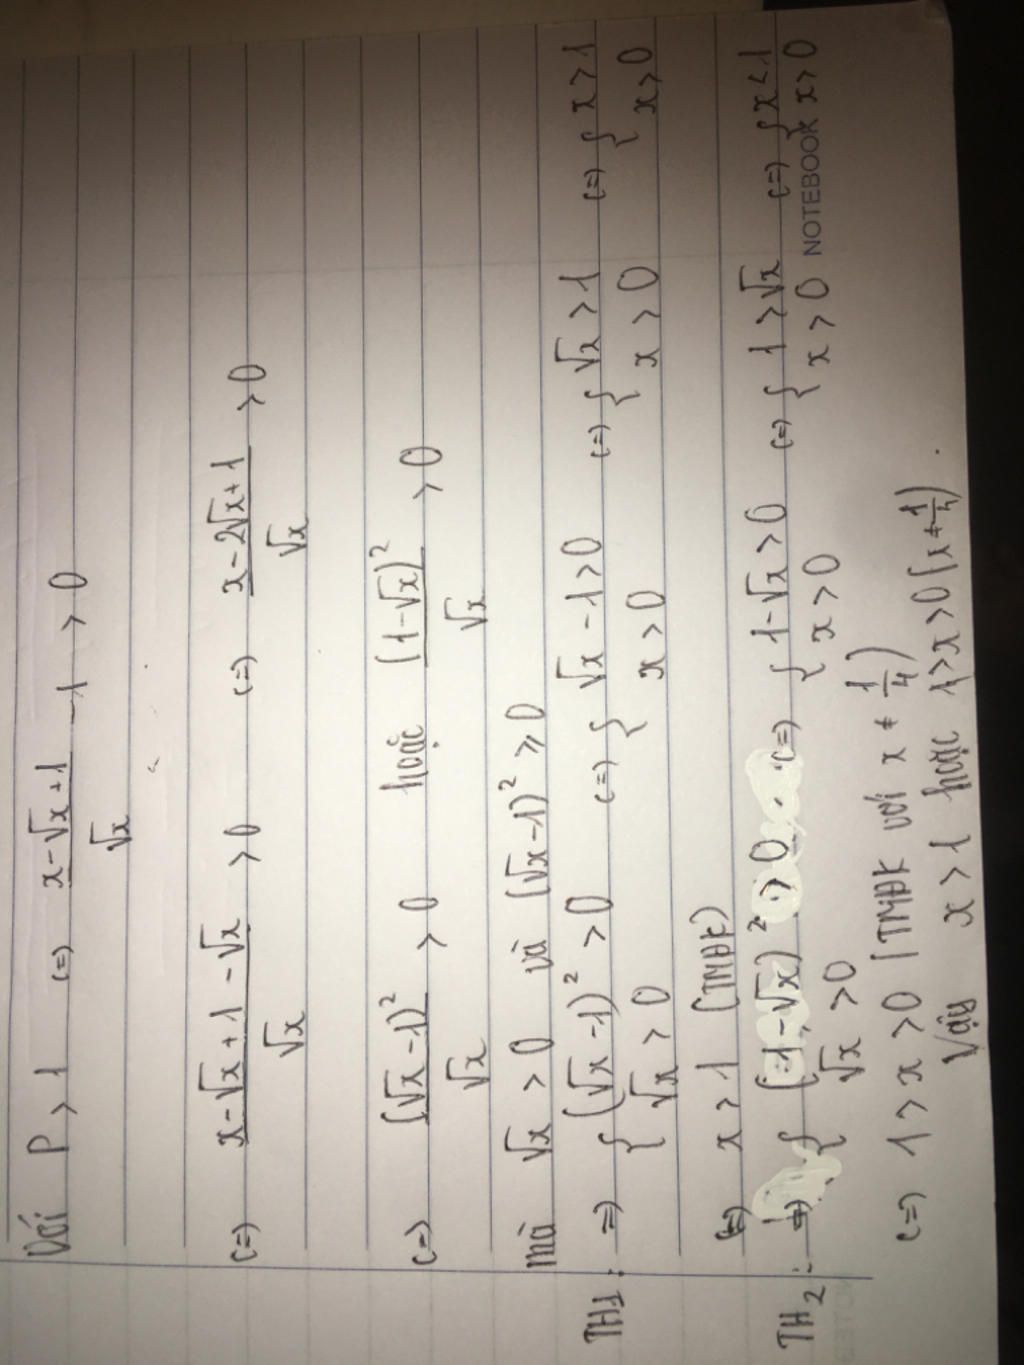 Với P > 1 (=) x-√x+1/√x - 1 > 0
(=) x-√x+1-√x/√x > 0 (=) x-2√x+1/√x > 0
(=) (√x-1)²/√x > 0 hoặc (1-√x)²/√x > 0
mà √x > 0 và (√x-1)² ≥ 0
TH1: => { (√x-1)² > 0 (=) { √x-1 > 0 (=) { √x > 1 (=) { x > 1
√x > 0 x > 0 x > 0 x > 0
(=) x > 1 (TMĐK)
TH2: => { (1-√x)² > 0 (=) { 1-√x > 0 (=) { 1 > √x (=) { x < 1
√x > 0 x > 0 x > 0 NOTEBOOK x > 0
(=) 1 > x > 0 (TMĐK với x ≠ 1/4)
Vậy x > 1 hoặc 1 > x > 0 (x ≠ 1/4).